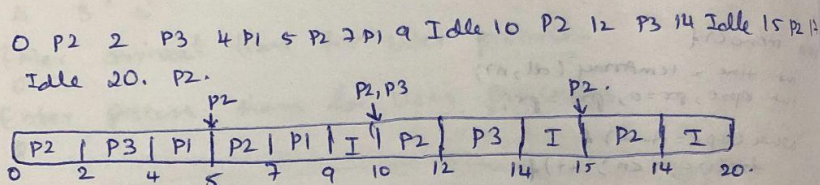 0 P2 2 P3 4 P1 5 P2 7 P1 9 Idle 10 P2 12 P3 14 Idle 15 P2 17
Idle 20. P2.
P2 P2, P3 P2.
P2 P3 P1 P2 P1 I P2 P3 I P2 I
0 2 4 5 7 9 10 12 14 15 14 20.